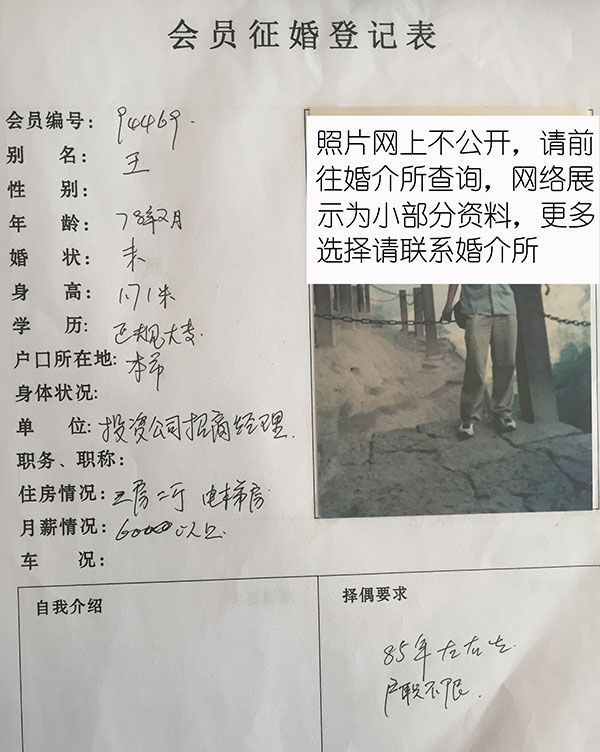 会员征婚登记表
会员编号: 94469.
别 名: 王
性 别:
年 龄: 78年2月
婚 状: 未
身 高: 1.71米
学 历: 正规大专.
户口所在地: 本市
身体状况:
单 位: 投资公司招商经理.
职务、职称:
住房情况: 三房二厅 电梯房
月薪情况: 6000以上.
车 况:
照片网上不公开，请前
往婚介所查询，网络展
示为小部分资料，更多
选择请联系婚介所
自我介绍
择偶要求
85年左右
户职不限.